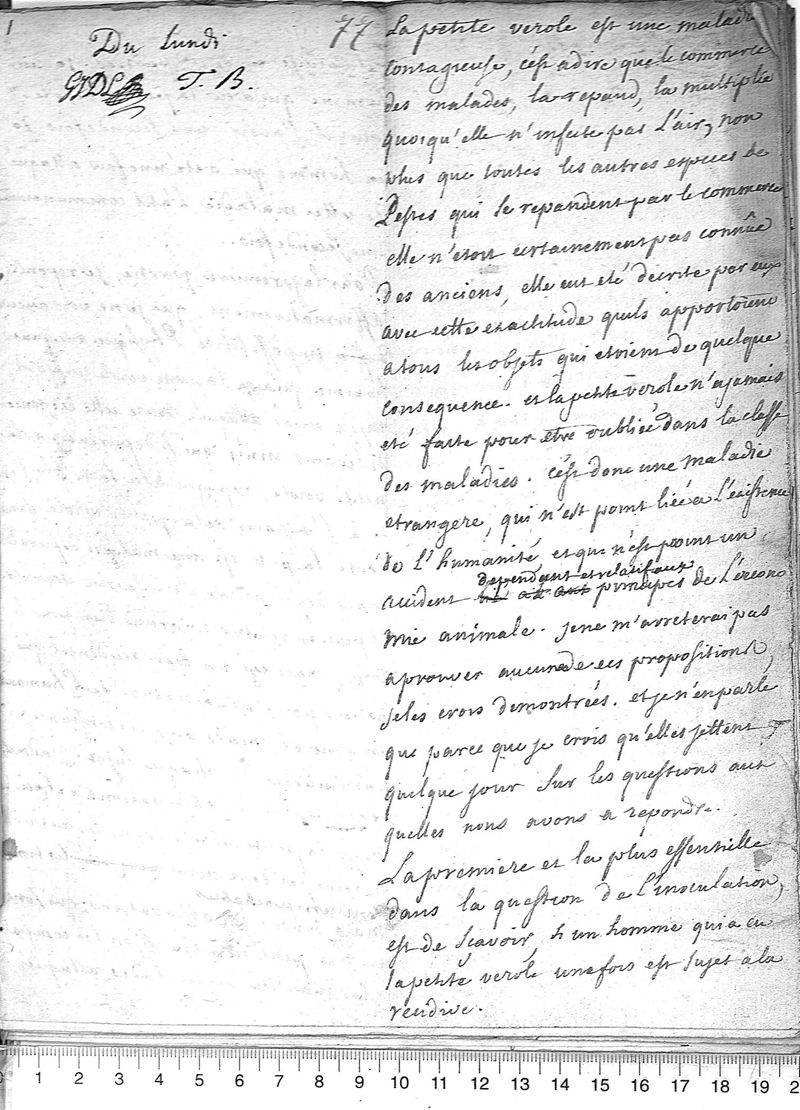 1
Du Lundi
T. B.
77
La petite verole est une maladie
contagieuse, c'est a dire que le commerce
des malades, la repand, la multiplie
quoiqu'elle n'infecte pas L'air, non
plus que toutes les autres especes de
Pestes qui se repandent par le commerce
elle n'etoit certainement pas connüe
des anciens, elle eut eté decrite par eux
avec cette exactitude quils apportoient
a tous les objets qui etoient de quelque
consequence. et la petite verole n'a jamais
eté faite pour etre oubliée dans la classe
des maladies. c'est donc une maladie
etrangere, qui n'est point liée a L'existence
de L'humanité et qui n'est point un
dependant et relatif aux
accident principes de L'econo
mie animale. je ne m'arreterai pas
a prouver aucune de ces propositions,
je les crois demontrées. et je n'en parle
que parce que je crois qu'elles jettent
quelque jour sur les questions aux
quelles nous avons a repondre.
La premiere et la plus essentielle
dans la question de L'inoculation,
est de scavoir, si un homme qui a eu
la petite verole une fois est sujet a la
recidive.
0 1 2 3 4 5 6 7 8 9 10 11 12 13 14 15 16 17 18 19 2